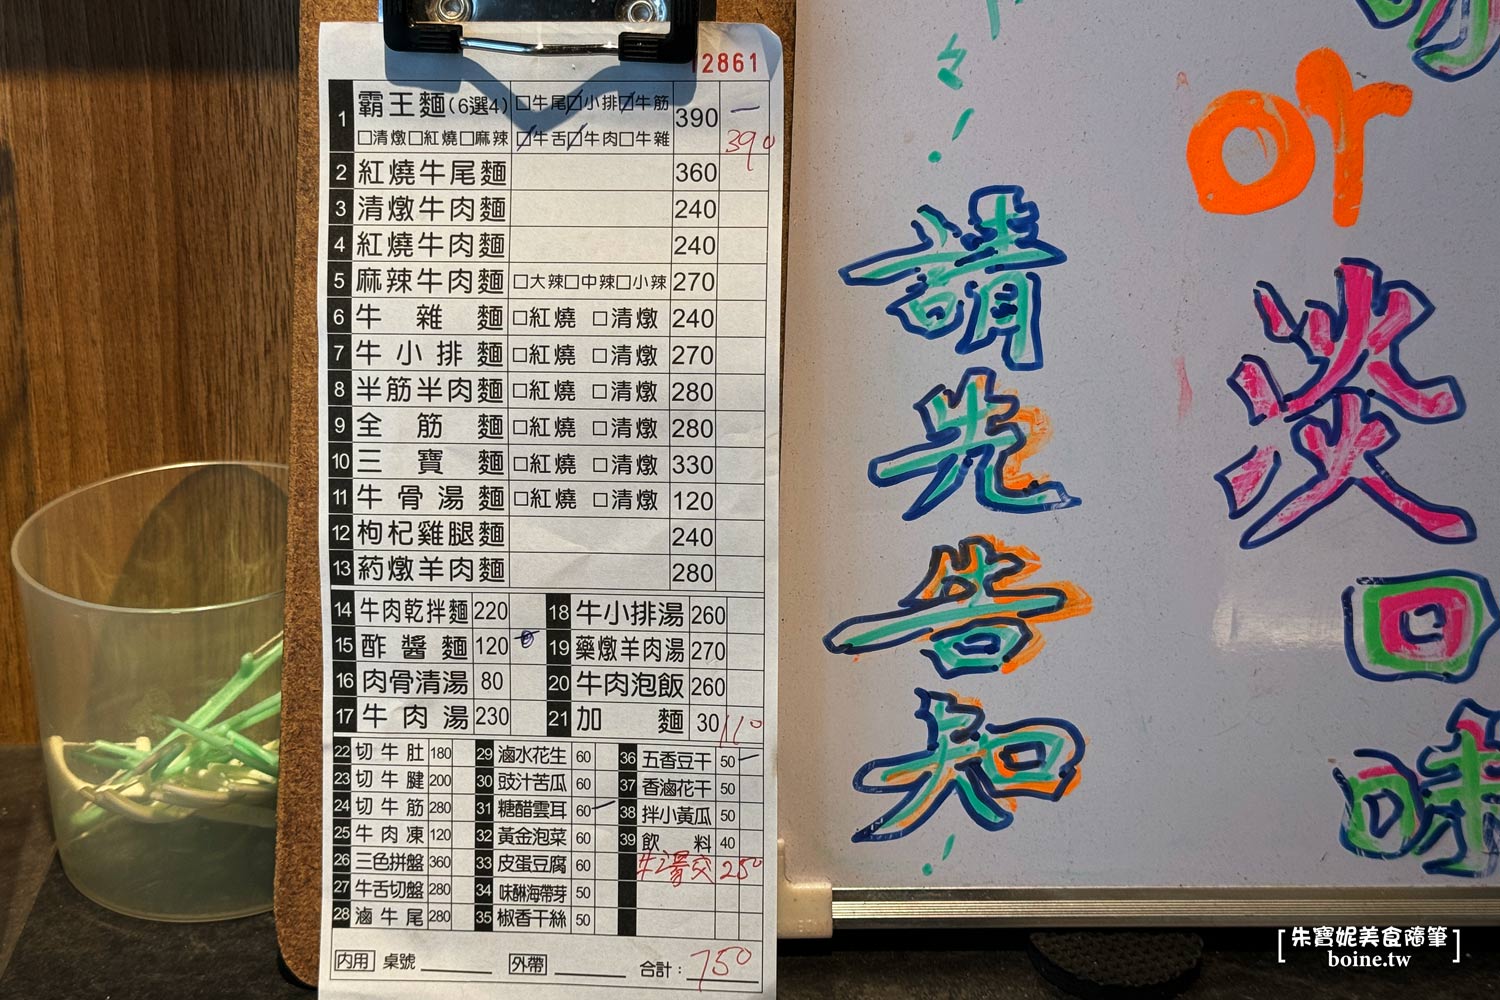 12861
1 霸王麵(6選4) □牛尾☑小排☑牛筋 390 一
□清燉□紅燒□麻辣 ☑牛舌☑牛肉□牛雜 390
2 紅燒牛尾麵 360
3 清燉牛肉麵 240
4 紅燒牛肉麵 240
5 麻辣牛肉麵 □大辣□中辣□小辣 270
6 牛雜麵 □紅燒 □清燉 240
7 牛小排麵 □紅燒 □清燉 270
8 半筋半肉麵 □紅燒 □清燉 280
9 全筋麵 □紅燒 □清燉 280
10 三寶麵 □紅燒 □清燉 330
11 牛骨湯麵 □紅燒 □清燉 120
12 枸杞雞腿麵 240
13 葯燉羊肉麵 280
14 牛肉乾拌麵 220
15 酢醬麵 120
16 肉骨清湯 80
17 牛肉湯 230
18 牛小排湯 260
19 藥燉羊肉湯 270
20 牛肉泡飯 260
21 加麵 30
110
22 切牛肚 180
23 切牛腱 200
24 切牛筋 280
25 牛肉凍 120
26 三色拼盤 360
27 牛舌切盤 280
28 滷牛尾 280
29 滷水花生 60
30 豉汁苦瓜 60
31 糖醋雲耳 60 一
32 黃金泡菜 60
33 皮蛋豆腐 60
34 味醂海帶芽 50
35 椒香干絲 50
36 五香豆干 50 一
37 香滷花干 50
38 拌小黃瓜 50
39 飲料 40
250
內用 桌號 外帶 合計: 750
請先告知
or
淡口味
[朱寶妮美食隨筆]
boine.tw